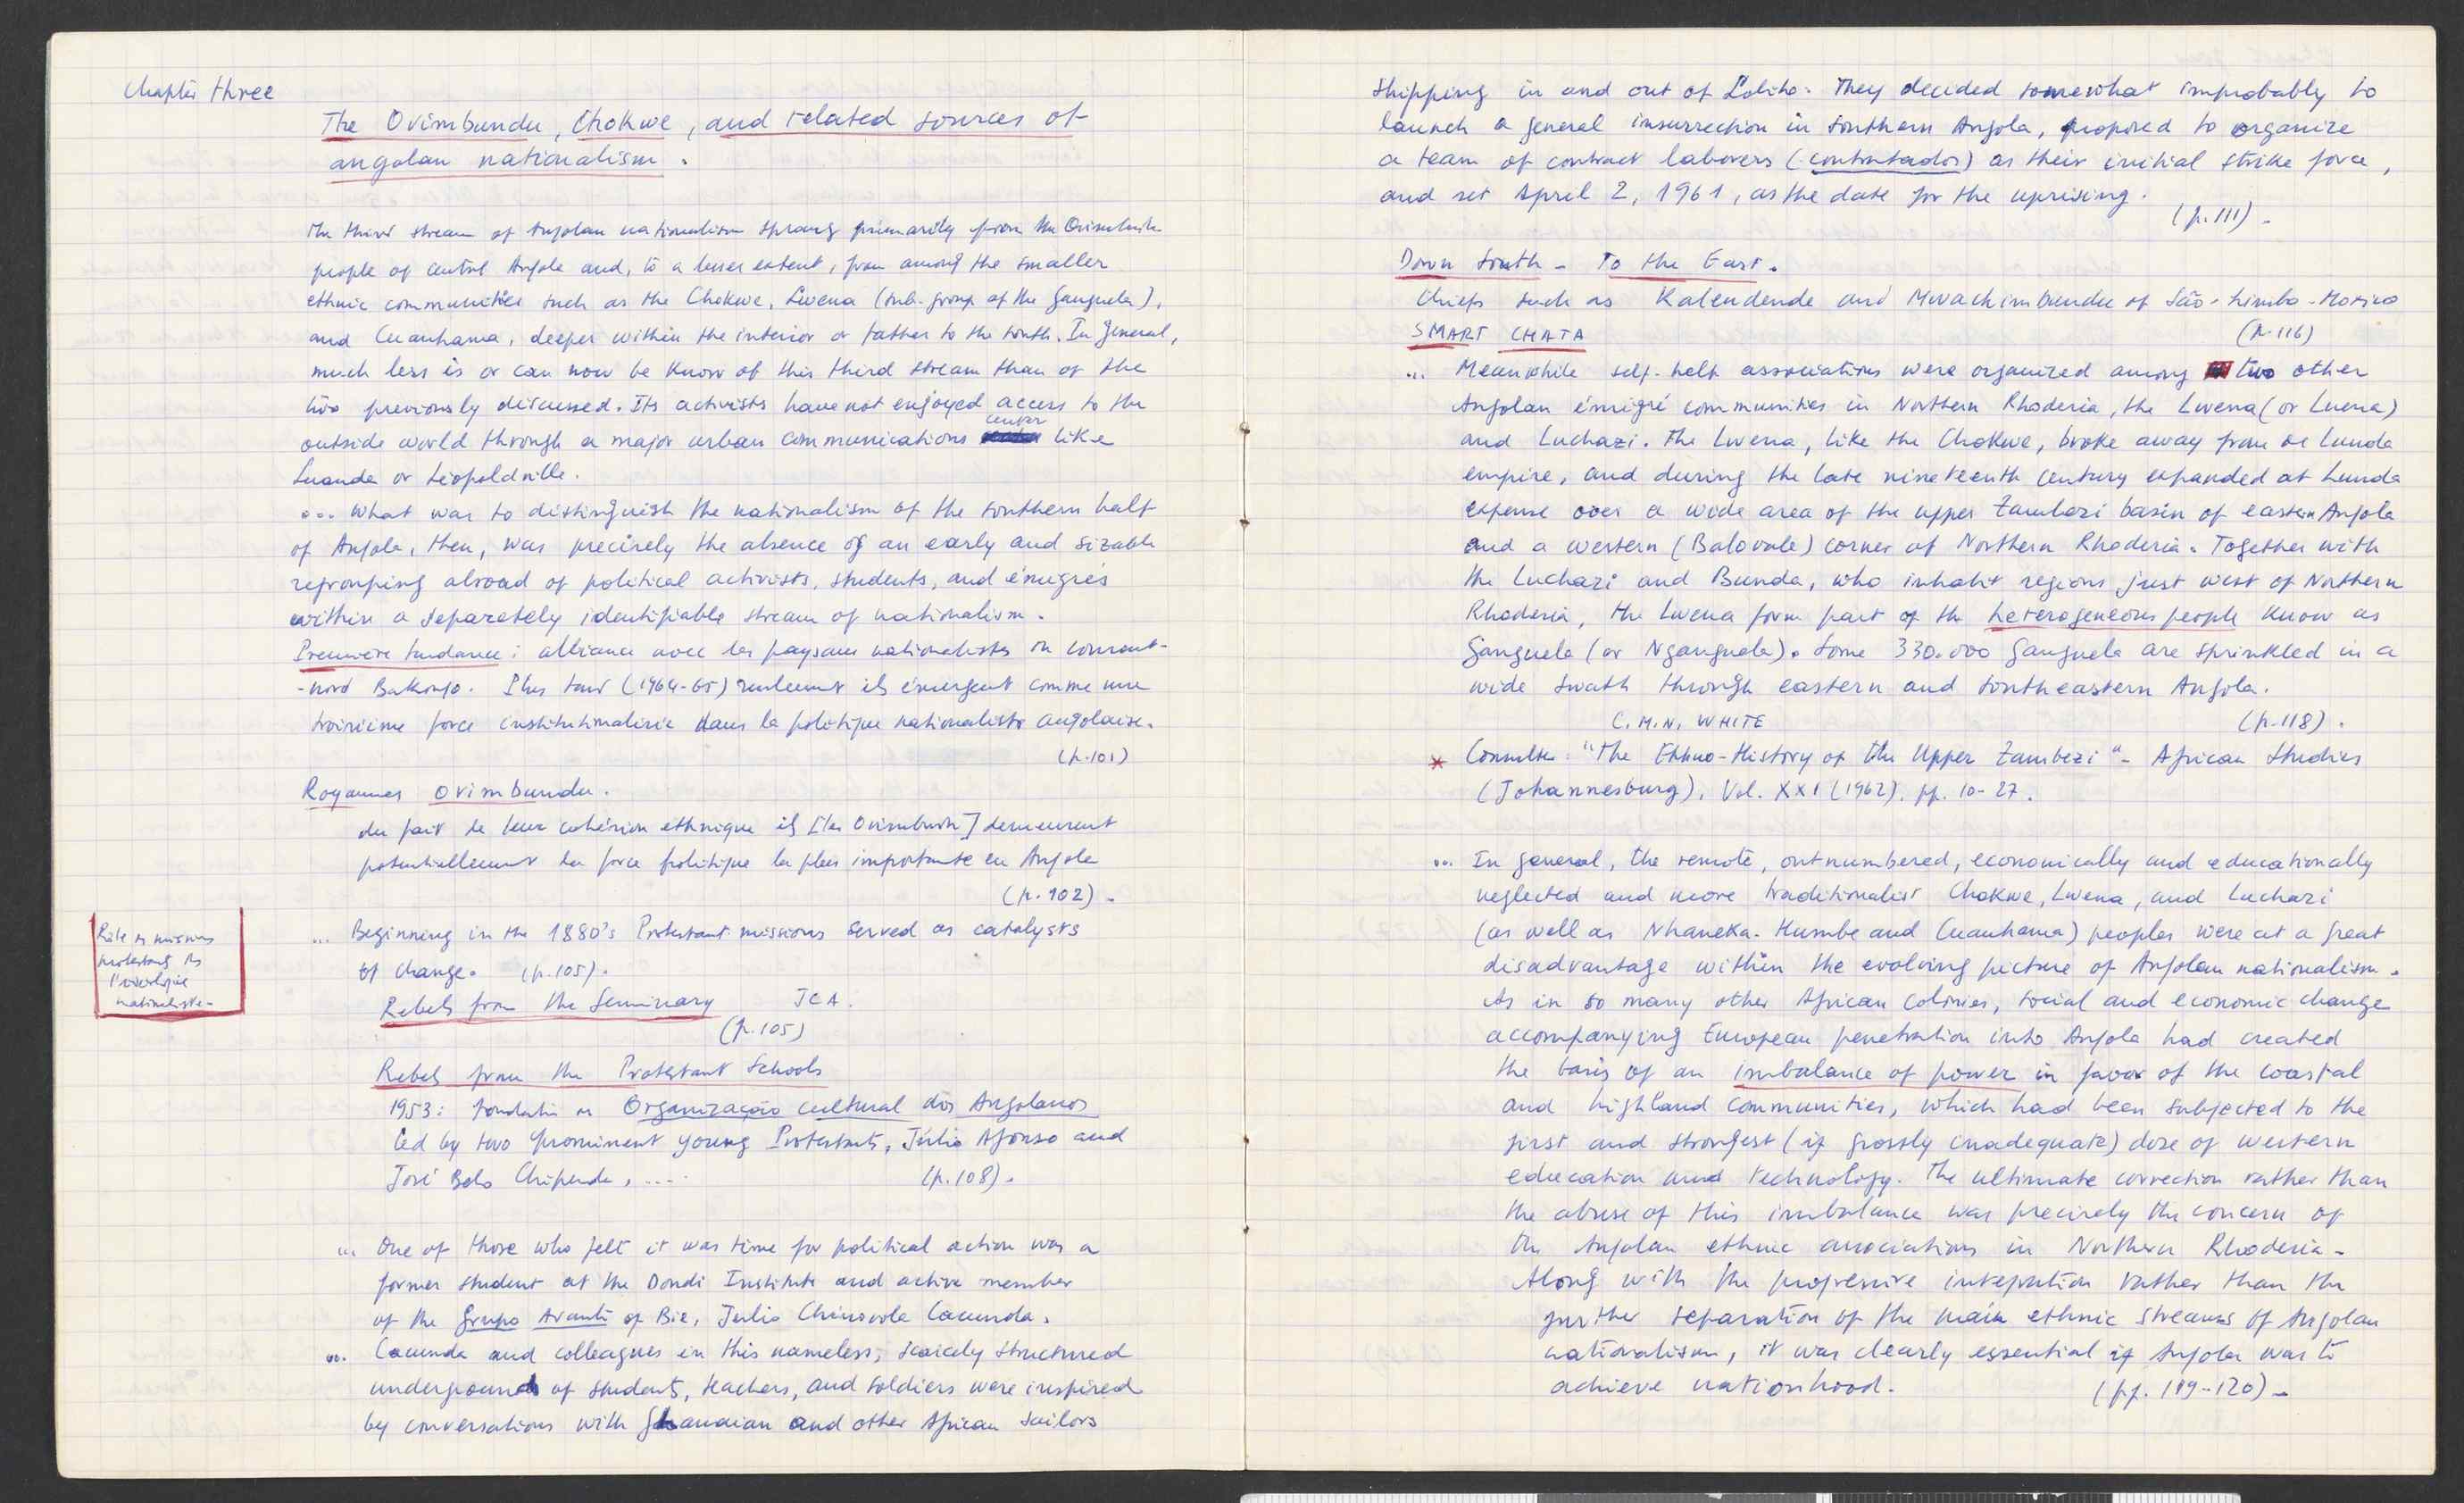 Chapter three
The Ovimbundu, Chokwe, and related sources of
angolan nationalism.
The third stream of Angolan nationalism sprang primarily from the Ovimbundu
people of central Angola and, to a lesser extent, from among the smaller
ethnic communities such as the Chokwe, Lwena (sub-group of the Ganguela),
and Cuanhama, deeper within the interior or father to the south. In general,
much less is or can now be know of this third stream than of the
two previously discussed. Its activists have not enjoyed access to the
outside world through a major urban communications center like
Luanda or Léopoldville.
... What was to distinguish the nationalism of the southern half
of Angola, then, was precisely the absence of an early and sizable
regrouping abroad of political activists, students, and émigrés
within a separately identifiable stream of nationalism.
Première tendance : alliance avec les paysans nationalistes du courant-
-nord Bakongo. Plus tard (1964-65) seulement ils émergent comme une
troisième force institutionalisée dans la politique nationaliste angolaise.
(p.101)
Royaumes Ovimbundu.
du fait de leur cohésion ethnique ils [les Ovimbundu] demeurent
potentiellement la force politique la plus importante en Angola
(p.102).
Rôle des missions
protestantes ds
l'idéologie
nationaliste.
... Beginning in the 1880's Protestant missions served as catalysts
of change. (p.105).
Rebels from the Seminary JCA.
(p.105)
Rebels from the Protestant Schools
1953: fondation de Organização cultural dos Angolanos
led by two prominent young Protestants, Júlio Afonso and
José Belo Chipenda, ....
(p.108).
... One of those who felt it was time for political action was a
former student at the Dondi Institute and active member
of the Grupo Avante of Bié, Julio Chinovola Cacunda.
... Cacunda and colleagues in this nameless, scarcely structured
underground of students, teachers, and soldiers were inspired
by conversations with Ghanaian and other African sailors
shipping in and out of Lobito. They decided somewhat improbably to
launch a general insurrection in southern Angola, proposed to organize
a team of contract laborers (contratados) as their initial strike force,
and set April 2, 1961, as the date for the uprising.
(p.111).
Down South - To the East.
Chiefs such as Kalendende and Mwachimbundu of São-Limbo-Moxico
SMART CHATA (p.116)
... Meanwhile self-help associations were organized among two other
Angolan émigré communities in Northern Rhodesia, the Lwena (or Luena)
and Luchazi. The Lwena, like the Chokwe, broke away from de Lunda
empire, and during the late nineteenth century expanded at Lunda
expense over a wide area of the upper Zambezi basin of eastern Angola
and a western (Balovale) corner of Northern Rhodesia. Together with
the Luchazi and Bunda, who inhabit regions just west of Northern
Rhodesia, the Lwena form part of the heterogeneous people know as
Ganguela (or Nganguela). Some 330.000 Ganguela are sprinkled in a
wide swath through eastern and southeastern Angola.
C.M.N. WHITE (p.118).
* Consulter : "The Ethno-History of the Upper Zambezi" - African Studies
(Johannesburg), Vol. XXI (1962), pp. 10-27.
... In general, the remote, outnumbered, economically and educationally
neglected and more traditionalist Chokwe, Lwena, and Luchazi
(as well as Nhaneka-Humbe and Cuanhama) peoples were at a great
disadvantage within the evolving picture of Angolan nationalism.
As in so many other African colonies, social and economic change
accompanying European penetration into Angola had created
the basis of an imbalance of power in favor of the coastal
and highland communities, which had been subjected to the
first and strongest (if grossly inadequate) dose of western
education and technology. The ultimate correction rather than
the abuse of this imbalance was precisely the concern of
the Angolan ethnic associations in Northern Rhodesia -
Along with the progressive integration rather than the
further separation of the main ethnic streams of Angolan
nationalism, it was clearly essential if Angola was to
achieve nationhood. (pp. 119-120) -